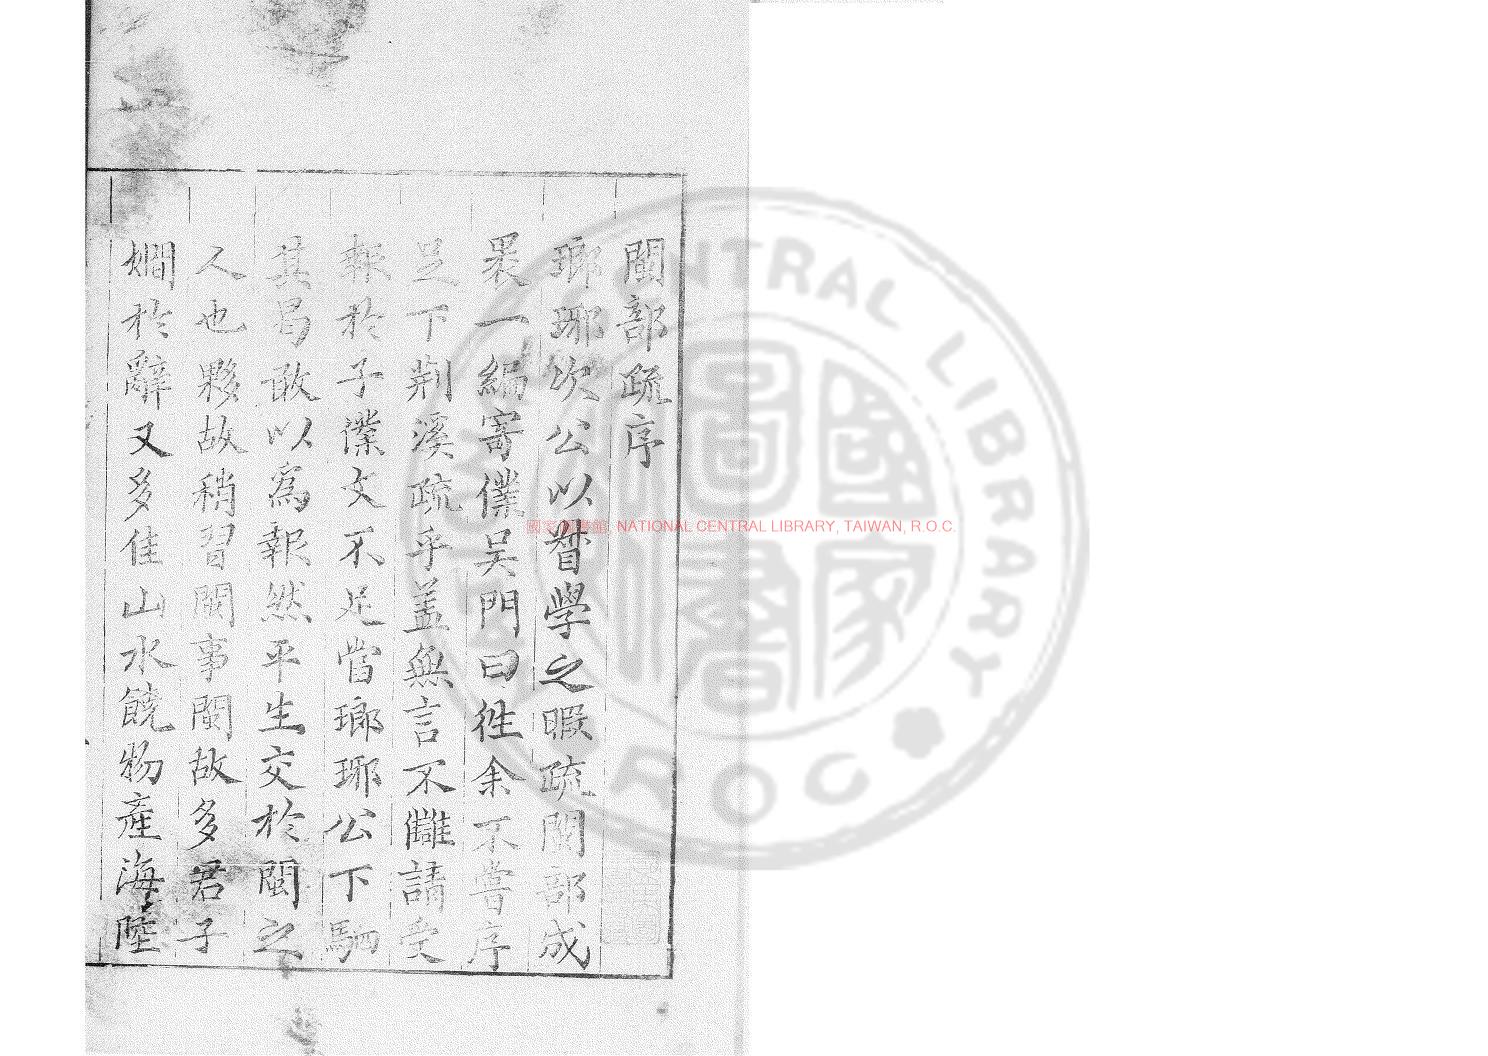 閩部疏序
瑯琊次公以督學之暇疏閩部成
褁一編寄僕吳門曰徃余不嘗序
足下荆溪疏乎盖無言不讎請受
報於子僕文不足當瑯琊公下駟
其曷敢以爲報然平生交於閩之
人也夥故稍習閩事閩故多君子
嫺於辭又多佳山水饒物產海陸
國家圖書館 NATIONAL CENTRAL LIBRARY, TAIWAN, R.O.C.
CENTRAL LIBRARY
ROC
國家圖書